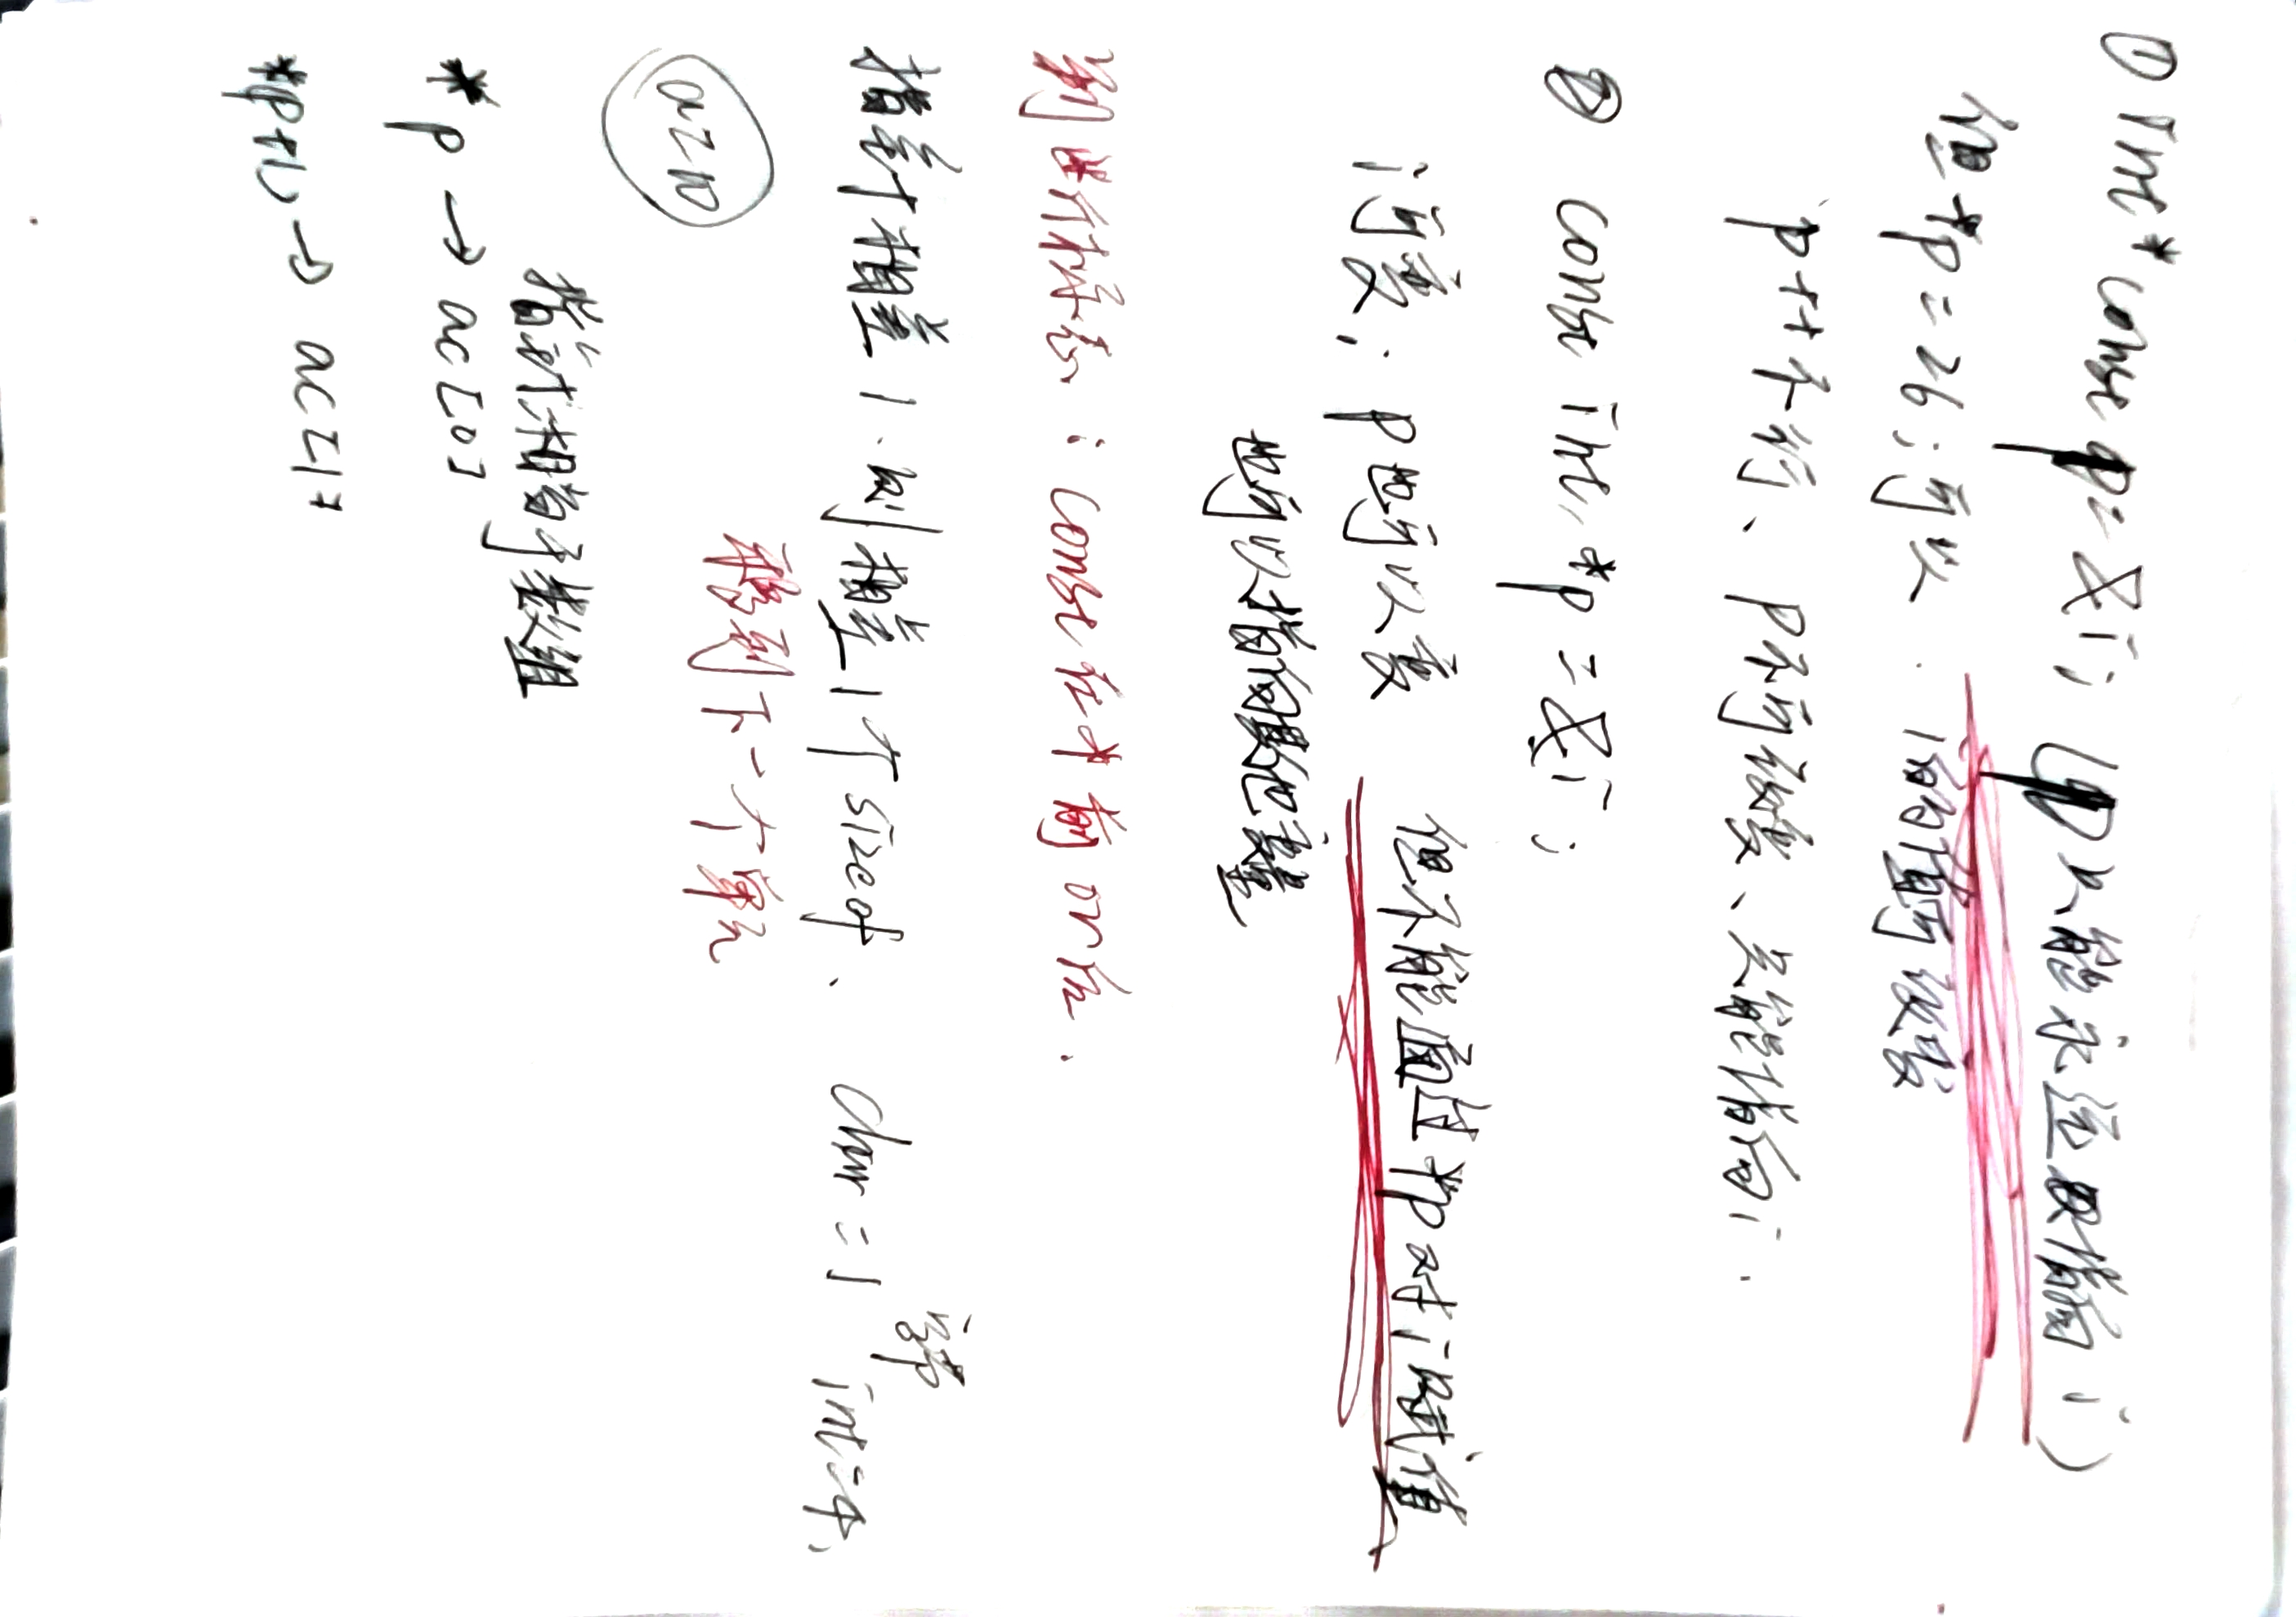 ① int * const p = &i; (p只能永远取指向 i)
但 *p = 26; 可以. i的值可改变
p++不行、p不可改变、只能指向i.
② const int *p = &i;
i可变; p也可以变 但不能通过*p对i赋值
也可以指向其他变量
判断标志: const在*前or后.
指针相差1.则相差1个sizeof. char = 1 int = 4.
移到下一个单元
指针相当于数组
*p → ac[0]
*(p+1) → ac[1]